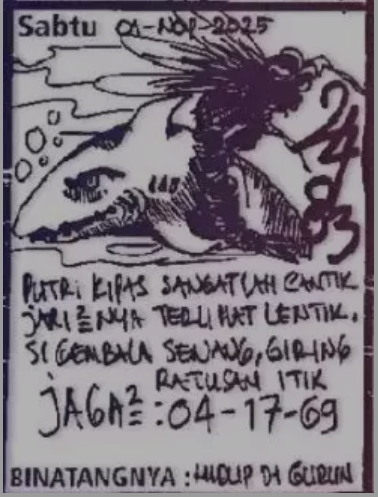 Sabtu 01-NOP-2025
24
83
PUTRI KIPAS SANGATLAH CANTIK
JARI²NYA TERLIHAT LENTIK.
SI GEMBALA SENANG, GIRING
RATUSAN ITIK
JAGA² : 04-17-69
BINATANGNYA : HIDUP DI GURUN